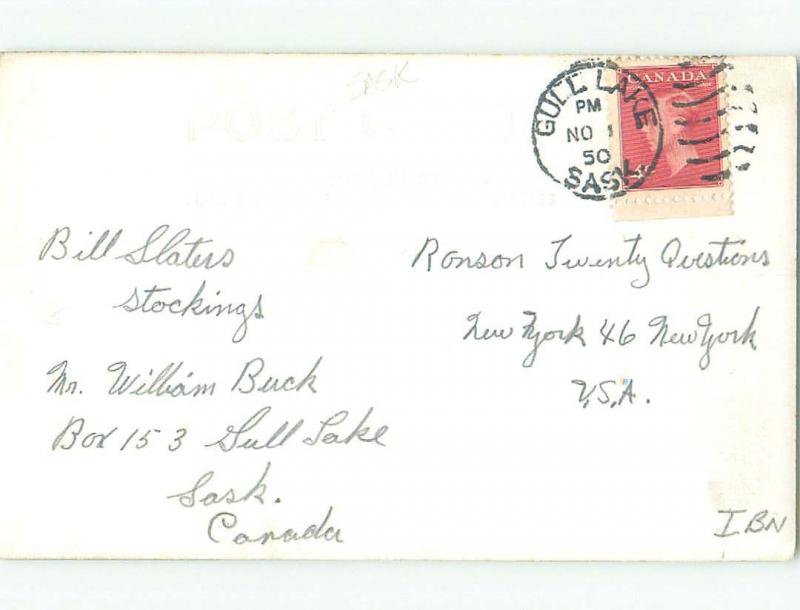 SASK
CANADA
GULL LAKE
PM
NO 1
50
SASK
Bill Slaters
stockings
Mr. William Buck
Box 153 Gull Lake
Sask.
Canada
Ronson Twenty Qvestions
New York 46 New York
U.S.A.
IBN